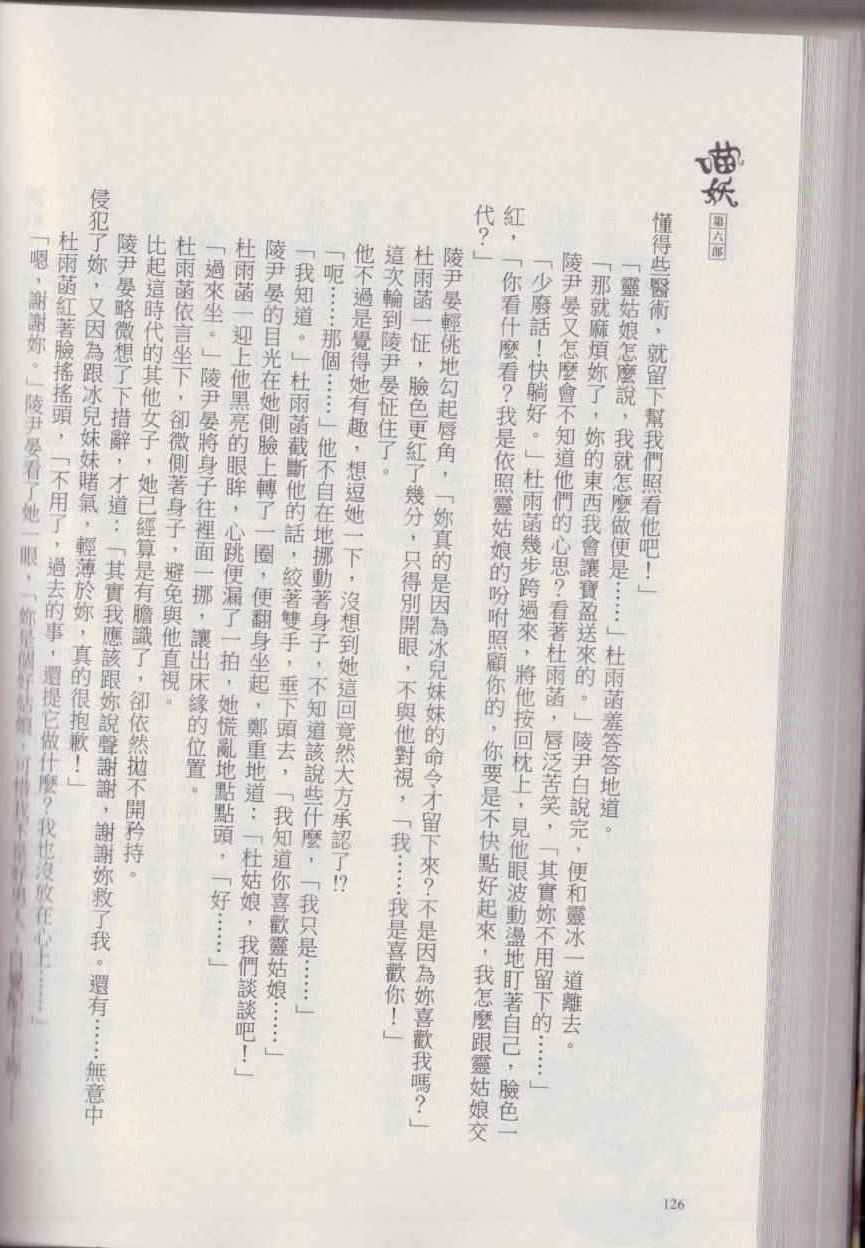 喵妖
第六部
懂得些醫術，就留下幫我們照看他吧！」
「靈姑娘怎麼說，我就怎麼做便是……」杜雨菡羞答答地道。
「那就麻煩妳了，妳的東西我會讓寶盈送來的。」陵尹白說完，便和靈冰一道離去。
陵尹晏又怎麼會不知道他們的心思？看著杜雨菡，唇泛苦笑，「其實妳不用留下的……」
「少廢話！快躺好。」杜雨菡幾步跨過來，將他按回枕上，見他眼波動盪地盯著自己，臉色一
紅，「你看什麼看？我是依照靈姑娘的吩咐照顧你的，你要是不快點好起來，我怎麼跟靈姑娘交
代？」
陵尹晏輕佻地勾起唇角，「妳真的是因為冰兒妹妹的命令才留下來？不是因為妳喜歡我嗎？」
杜雨菡一怔，臉色更紅了幾分，只得別開眼，不與他對視，「我……我是喜歡你！」
這次輪到陵尹晏怔住了。
他不過是覺得她有趣，想逗她一下，沒想到她這回竟然大方承認了!?
「呃……那個……」他不自在地挪動著身子，不知道該說些什麼，「我只是……」
「我知道。」杜雨菡截斷他的話，絞著雙手，垂下頭去，「我知道你喜歡靈姑娘……」
陵尹晏的目光在她側臉上轉了一圈，便翻身坐起，鄭重地道：「杜姑娘，我們談談吧！」
杜雨菡一迎上他黑亮的眼眸，心跳便漏了一拍，她慌亂地點點頭，「好……」
「過來坐。」陵尹晏將身子往裡面一挪，讓出床緣的位置。
杜雨菡依言坐下，卻微側著身子，避免與他直視。
比起這時代的其他女子，她已經算是有膽識了，卻依然拋不開矜持。
陵尹晏略微想了下措辭，才道：「其實我應該跟妳說聲謝謝，謝謝妳救了我。還有……無意中
侵犯了妳，又因為跟冰兒妹妹賭氣，輕薄於妳，真的很抱歉！」
杜雨菡紅著臉搖搖頭，「不用了，過去的事，還提它做什麼？我也沒放在心上……」
「嗯，謝謝妳。」陵尹晏看了她一眼，「妳是個好姑娘，可惜我不是好男人，
126